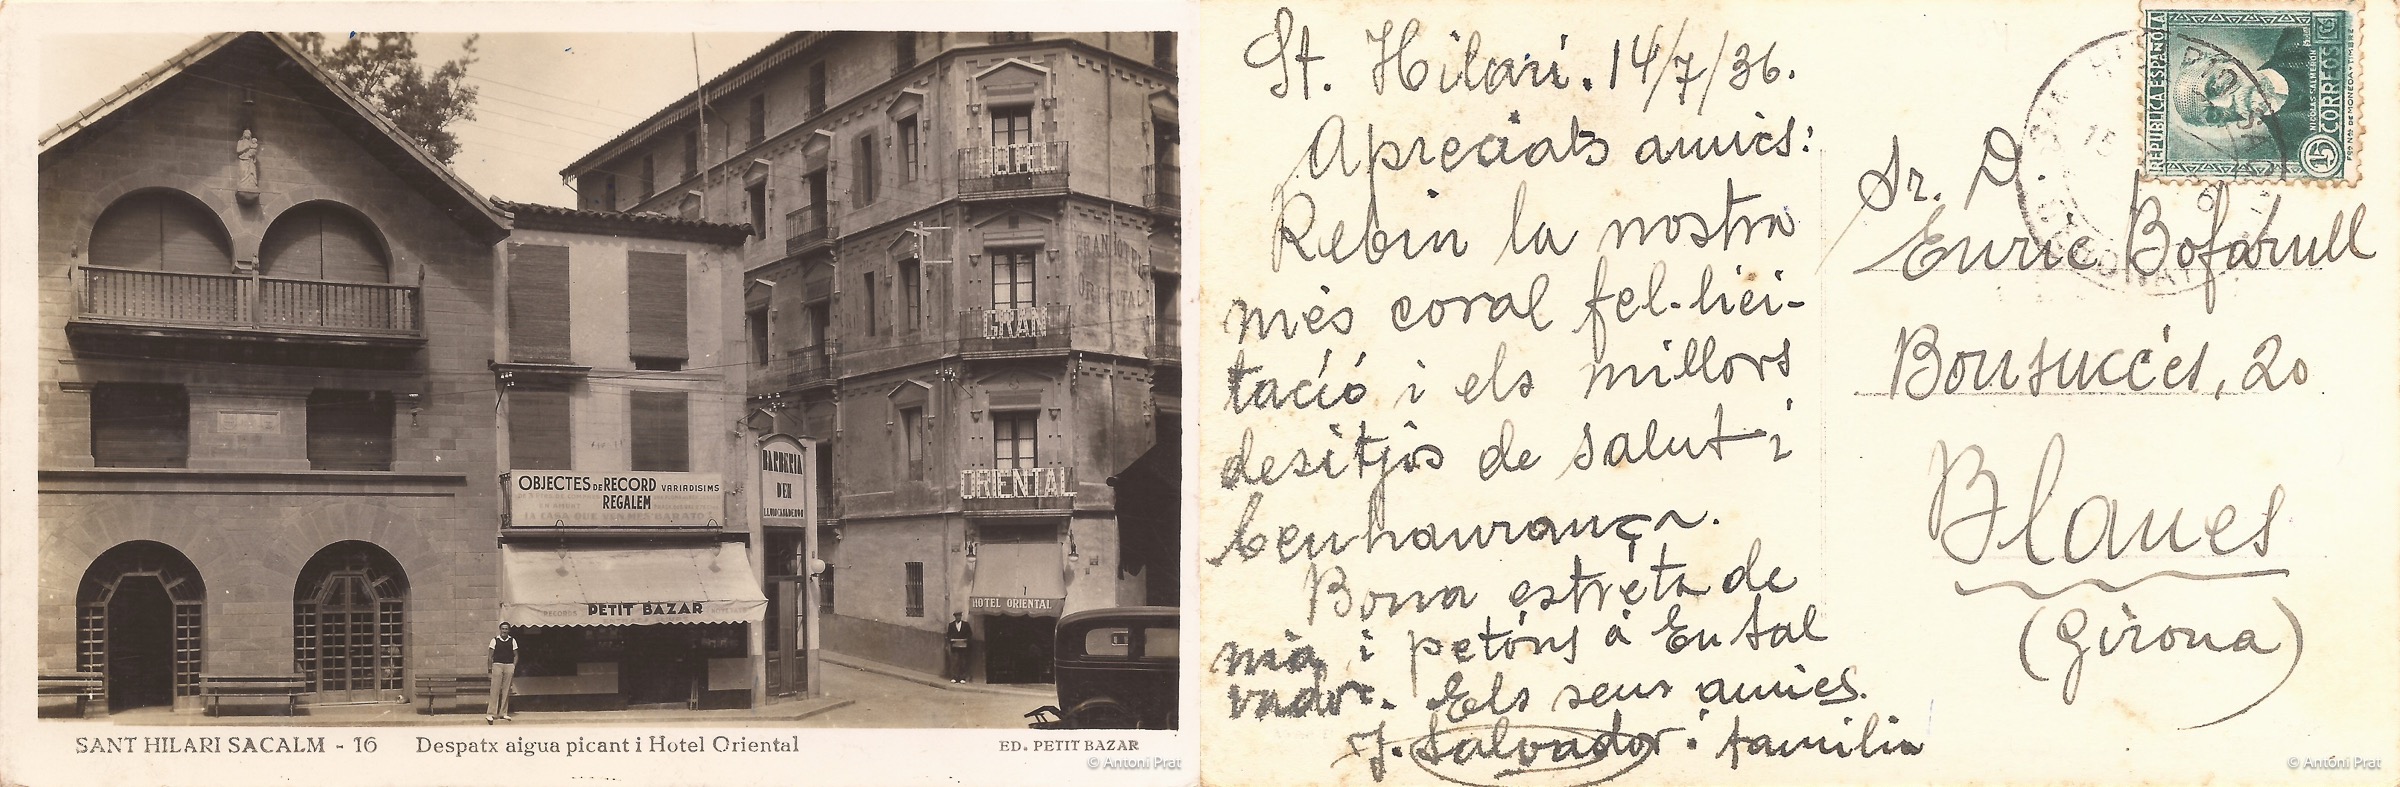 HOTEL
GRAN HOTEL
ORIENTAL
GRAN
ORIENTAL
OBJECTES DE RECORD VARIADISIMS
REGALEM
LA CASA QUE VEN MES BARATO
BARBERIA
D'EN
RECORDS PETIT BAZAR NOVETATS
HOTEL ORIENTAL
SANT HILARI SACALM - 16 Despatx aigua picant i Hotel Oriental
ED. PETIT BAZAR
© Antoni Prat
St. Hilari. 14/7/36.
Apreciats amics:
Rebin la nostra
més coral fel-lici-
tació i els millors
desitjos de salut i
benhaurança.
Bona estreta de
mà i petóns a En Sal
vador. Els seus amics.
J. Salvador i familia
REPUBLICA ESPAÑOLA
NICOLAS SALMERON
15 CORREOS Cs
Sr. D.
Enric Bofarull
Bonsuccés, 20
Blanes
(Girona)
© Antoni Prat